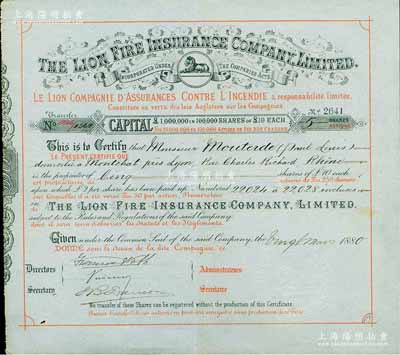 THE LION FIRE INSURANCE COMPANY, LIMITED.
INCORPORATED UNDER THE COMPANIES ACTS
LE LION COMPAGNIE D'ASSURANCES CONTRE L'INCENDIE à responsabilité limitée.
Constituée en vertu des lois Anglaises sur les Compagnies
Transfer
No 2641
No
CAPITAL £1,000,000 IN 100,000 SHARES OF £10 EACH
5 SHARES
ACTIONS
This is to Certify that Monsieur Mouterde (Paul Louis)
LE PRÉSENT CERTIFIE QUE
domicilié à Montchat près Lyon Rue Charles Richard Rhône
is the proprietor of Cinq shares of £10 each
est propriétaire de
upon which £2 per share has been paid up. Numbered 22024 à 22028 inclusive
IN
THE LION FIRE INSURANCE COMPANY, LIMITED.
subject to the Rules and Regulations of the said Company.
Given under the Common Seal of the said Company, the Cinq Mars 1880
DONNÉ sous le sceau de la dite Compagnie, le
Directors
Administrateurs
Secretary
Secrétaire
No transfer of these Shares can be registered without the production of this Certificate.